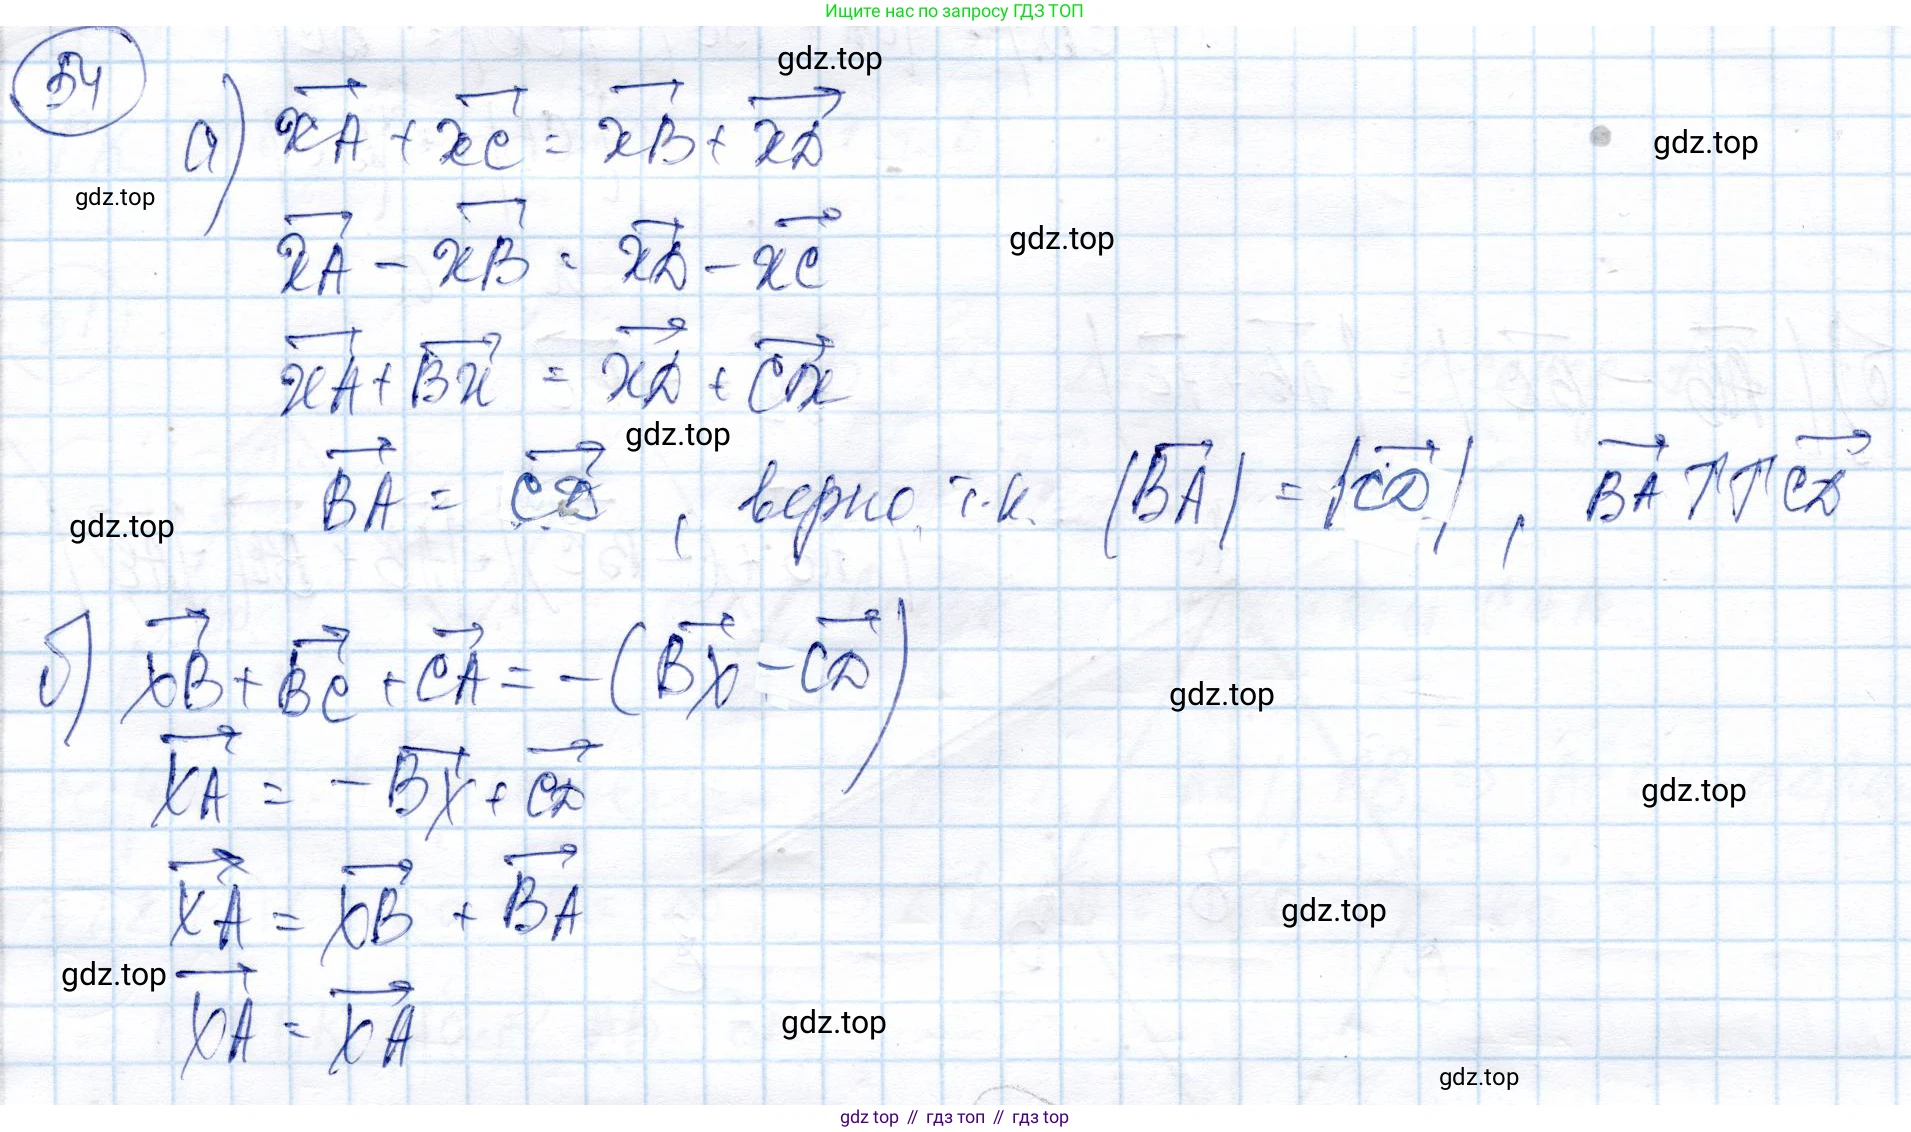 Ищите нас по запросу ГДЗ ТОП
54
gdz.top
а) x⃗A + x⃗C = x⃗B + x⃗D
gdz.top
gdz.top
x⃗A − x⃗B = x⃗D − x⃗C
gdz.top
x⃗A + B⃗x = x⃗D + C⃗x
gdz.top
B⃗A = C⃗D, верно, т.к. |B⃗A| = |C⃗D|, B⃗A ↑↑ C⃗D
gdz.top
б) X⃗B + B⃗C + C⃗A = −(B⃗X − C⃗D)
gdz.top
X⃗A = −B⃗X + C⃗D
gdz.top
X⃗A = X⃗B + B⃗A
gdz.top
gdz.top
X⃗A = X⃗A
gdz.top
gdz.top
gdz top // гдз топ // гдз top